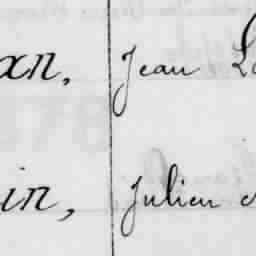 an, Jean
in, Julien